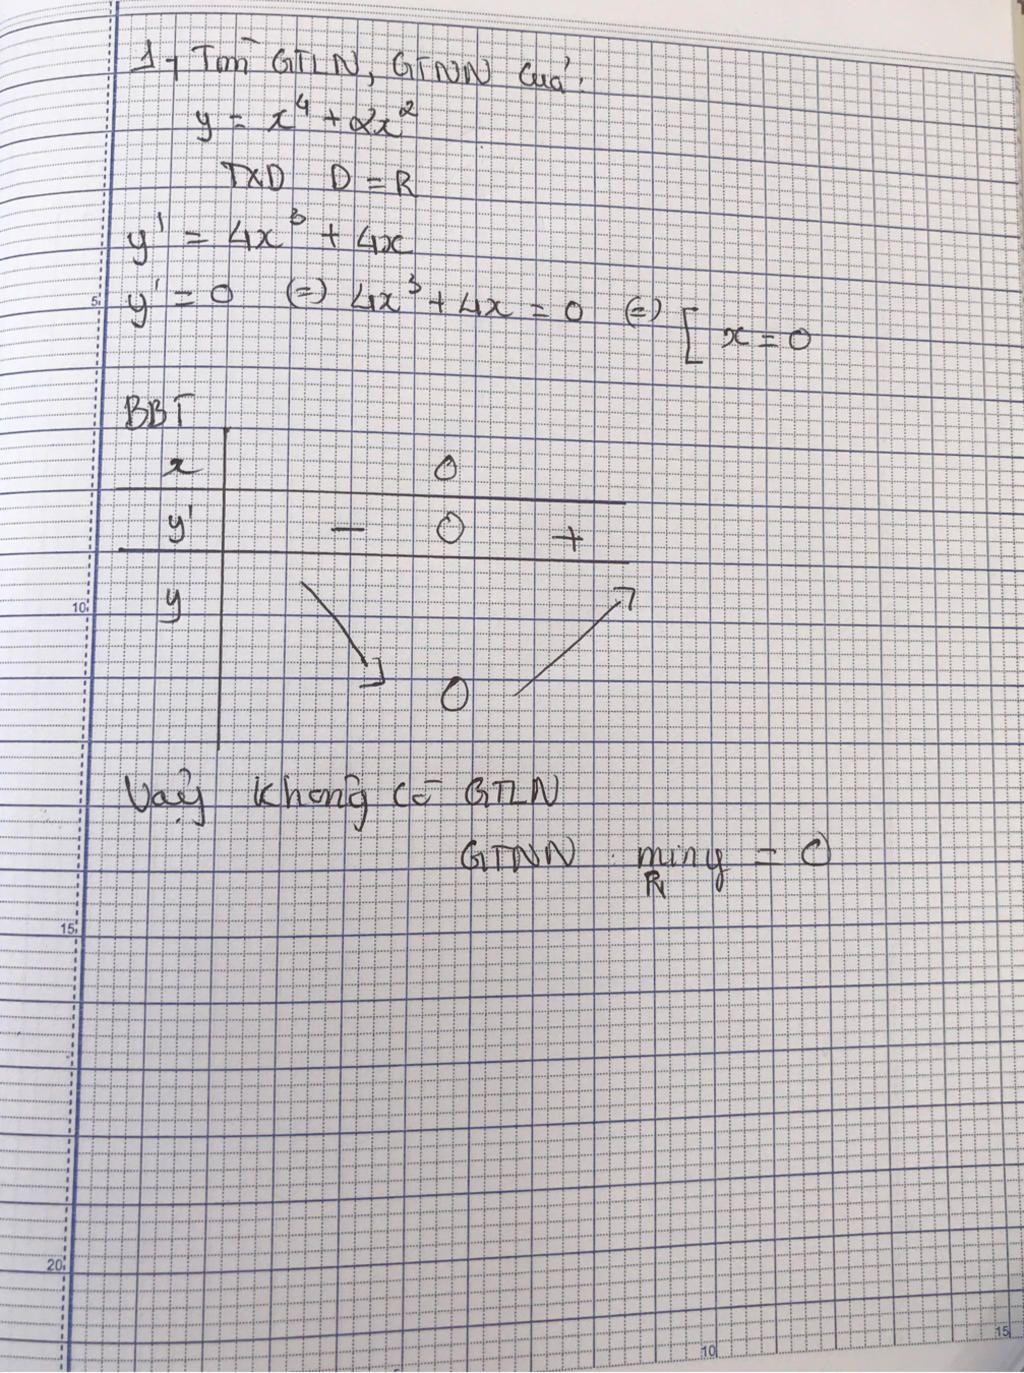 1, Tìm GTLN, GTNN của:
y = x⁴ + 2x²
TXD D = R
y' = 4x³ + 4x
y' = 0 (=) 4x³ + 4x = 0 (=) [ x = 0
5
BBT
x 0
y' − 0 +
y ↘ 0 ↗
10
Vậy không có GTLN
GTNN min y = 0
R
15
20
10 15